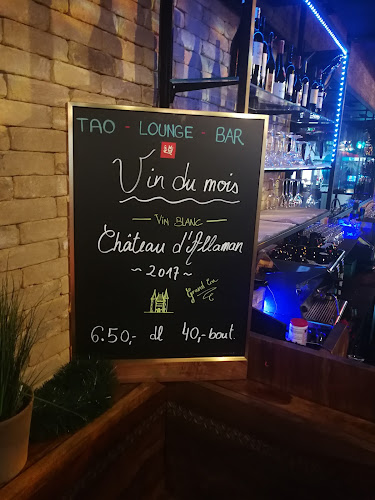 TAO - LOUNGE - BAR
Vin du mois
— VIN BLANC —
Château d'Allaman
~ 2017 ~
Grand Cru
6.50,- dl 40,- bout.